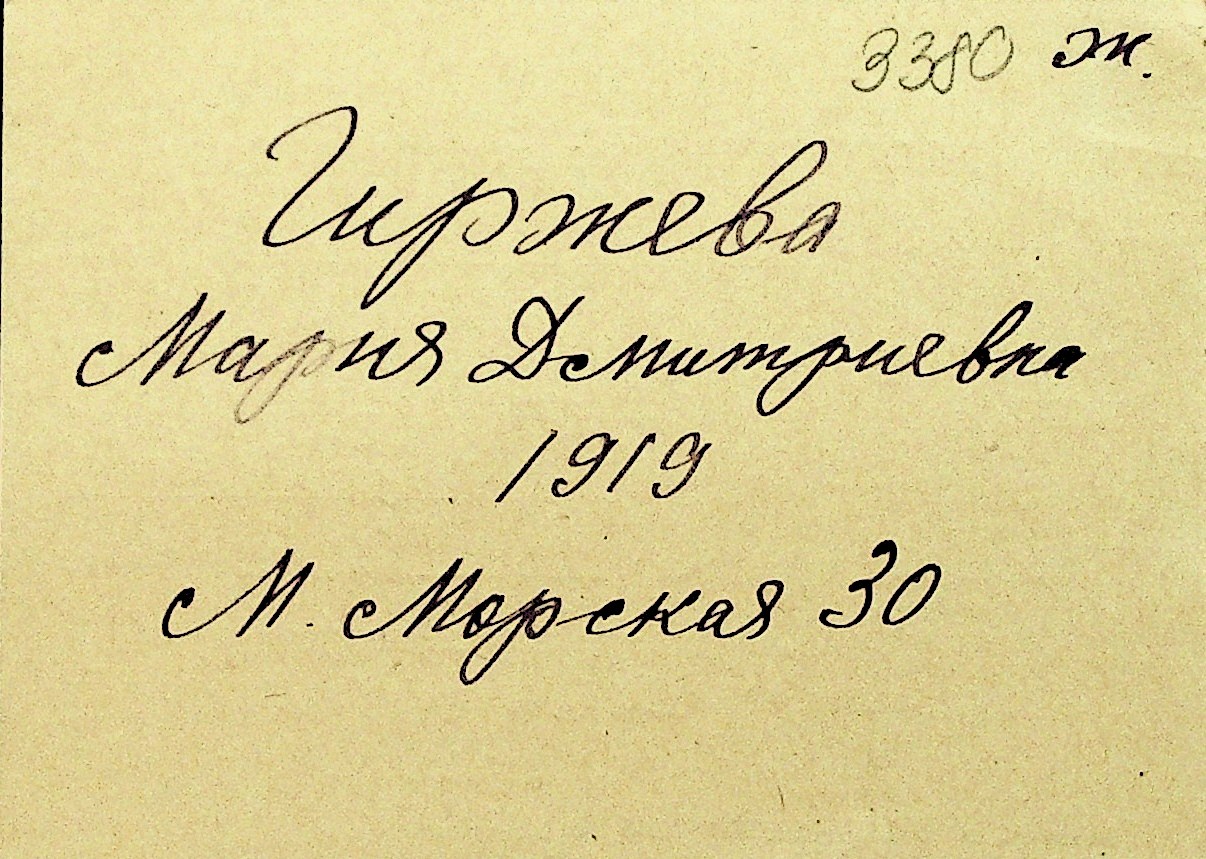 3380 ж.
Гиржева
Мария Дмитриевна
1919
М. Морская 30